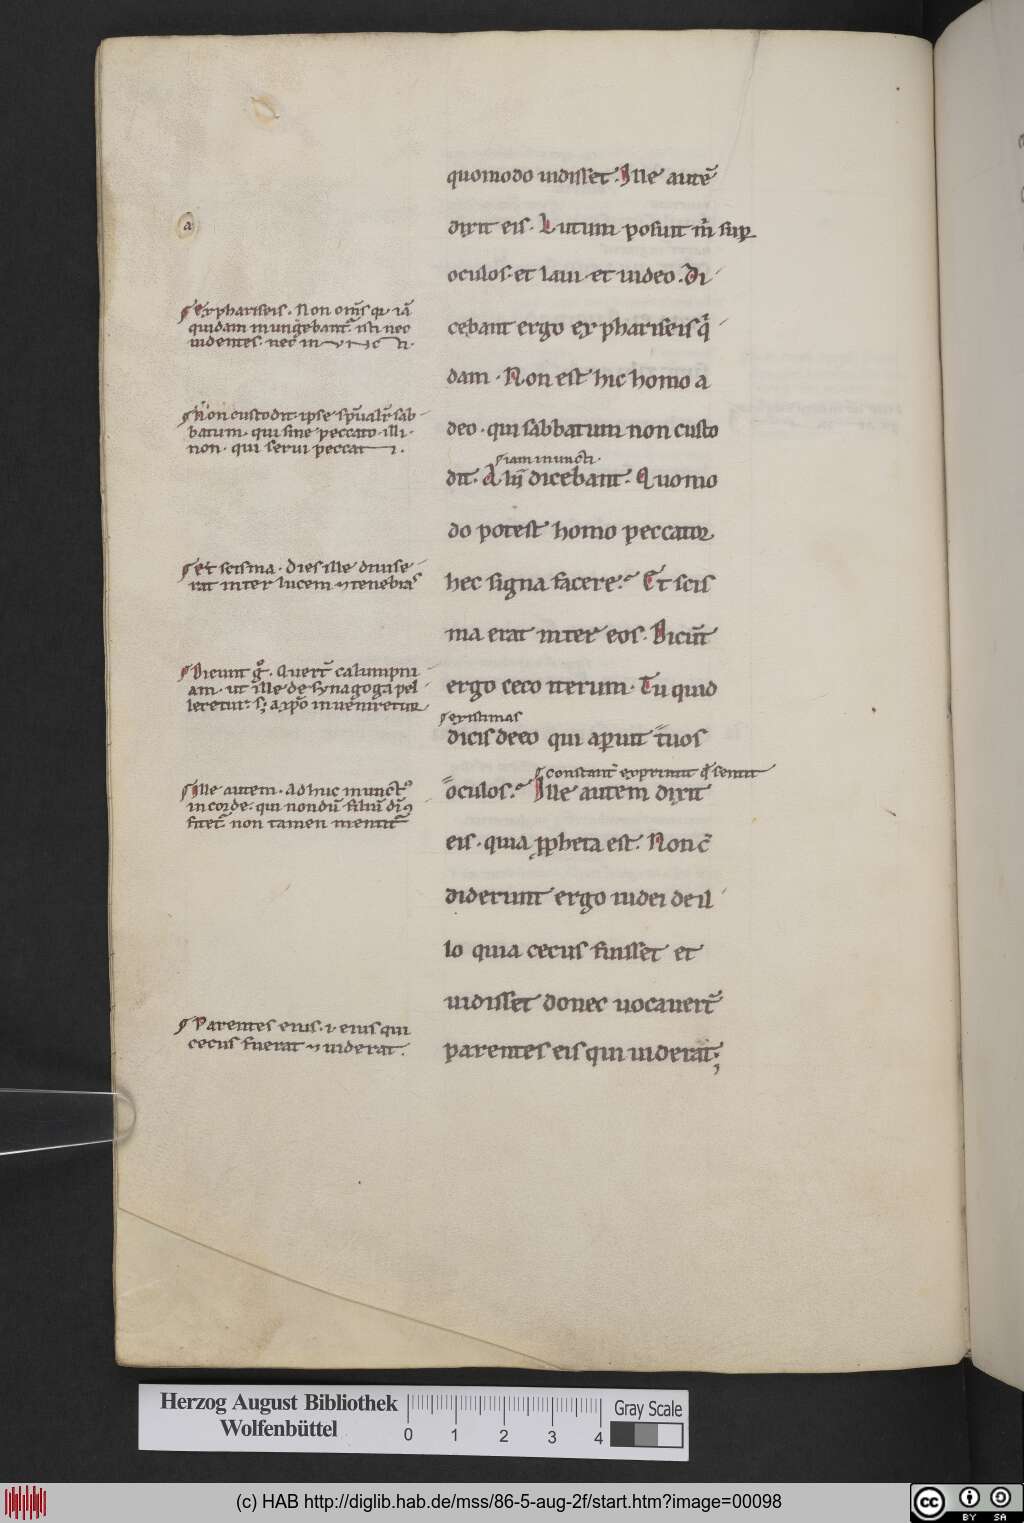 quomodo uidisset. Ille autē
dixit eis. Lutum posuit m̄ sup̱
oculos. et laui. et uideo. Di
cebant ergo ex phariseis q̇
dam. Non est hic homo a
deo. qui sabbatum non custo
iam inuncti.
dit. Alii dicebant. Quomo
do potest homo peccator
hec signa facere? Et scis
ma erat inter eos. Dicūt
ergo ceco iterum. Tu quid
existimas
dicis de eo qui aperuit tuos
constant̄ exprimit q̄ sentit
oculos? Ille autem dixit
eis. quia ꝓpheta est. Non c̄
diderunt ergo iudei de il
lo quia cecus fuisset et
uidisset donec uocauert̄
parentes eis qui uiderat;
a
Ex phariseis. Non om̄s q̇ iā
quidam inungebant̄. isti nec
uidentes. nec inuncti.
Non custodit. ipse sp̄ualit̄ sab
batum. qui sine peccato. illi
non. qui serui peccati.
Et scisma. Dies ille diuise
rat inter lucem ⁊ tenebras
Dicunt gͦ. Quert̄ calumpni
am. ut ille de synagoga pel
leretur. s; a xp̄o inueniretur
Ille autem. Adhuc inunctꝰ
in corde. qui nondū filiū dī ꝯ
fitet̄. non tamen mentit̄
Parentes eius. .i. eius qui
cecus fuerat ⁊ uiderat.
Herzog August Bibliothek
Wolfenbüttel
0 1 2 3 4
Gray Scale
(c) HAB http://diglib.hab.de/mss/86-5-aug-2f/start.htm?image=00098
cc BY SA